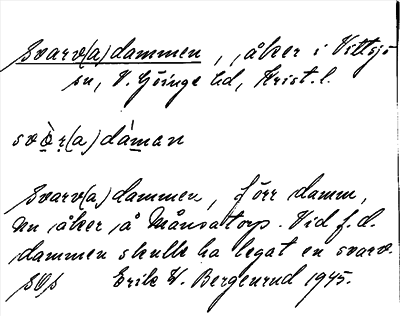 Svarv(a)dammen, åker i Vittsjö
sn, V. Göinge hd, Krist. l.
svò̤r(a)dàman
Svarv(a)dammen, förr damm,
nu åker å Månsatorp. Vid f.d.
dammen skulle ha legat en svarv.
Erik W. Bergenrud 1945.